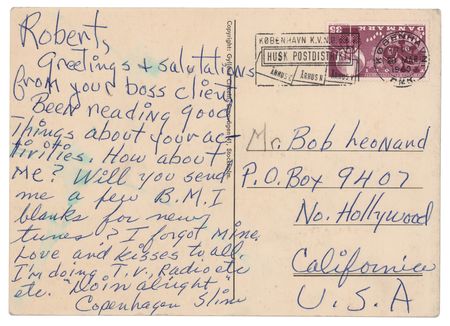 Robert,
Greetings & salutations
from your boss client
Been reading good
things about your ac-
tivities. How about
me? Will you send
me a few B.M.I
blanks for new
tunes? I forgot mine.
Love and kisses to all.
I'm doing T.V., Radio etc
etc. "Doin alright"
Copenhagen Slim
KØBENHAVN K.V.N.
HUSK POSTDISTRIKT
ÅRHUS C
ÅRHUS N
ÅRHUS V
KØBENHAVN
DANMARK
35
Mr. Bob Leonard
P.O. Box 9407
No. Hollywood
California
U.S.A